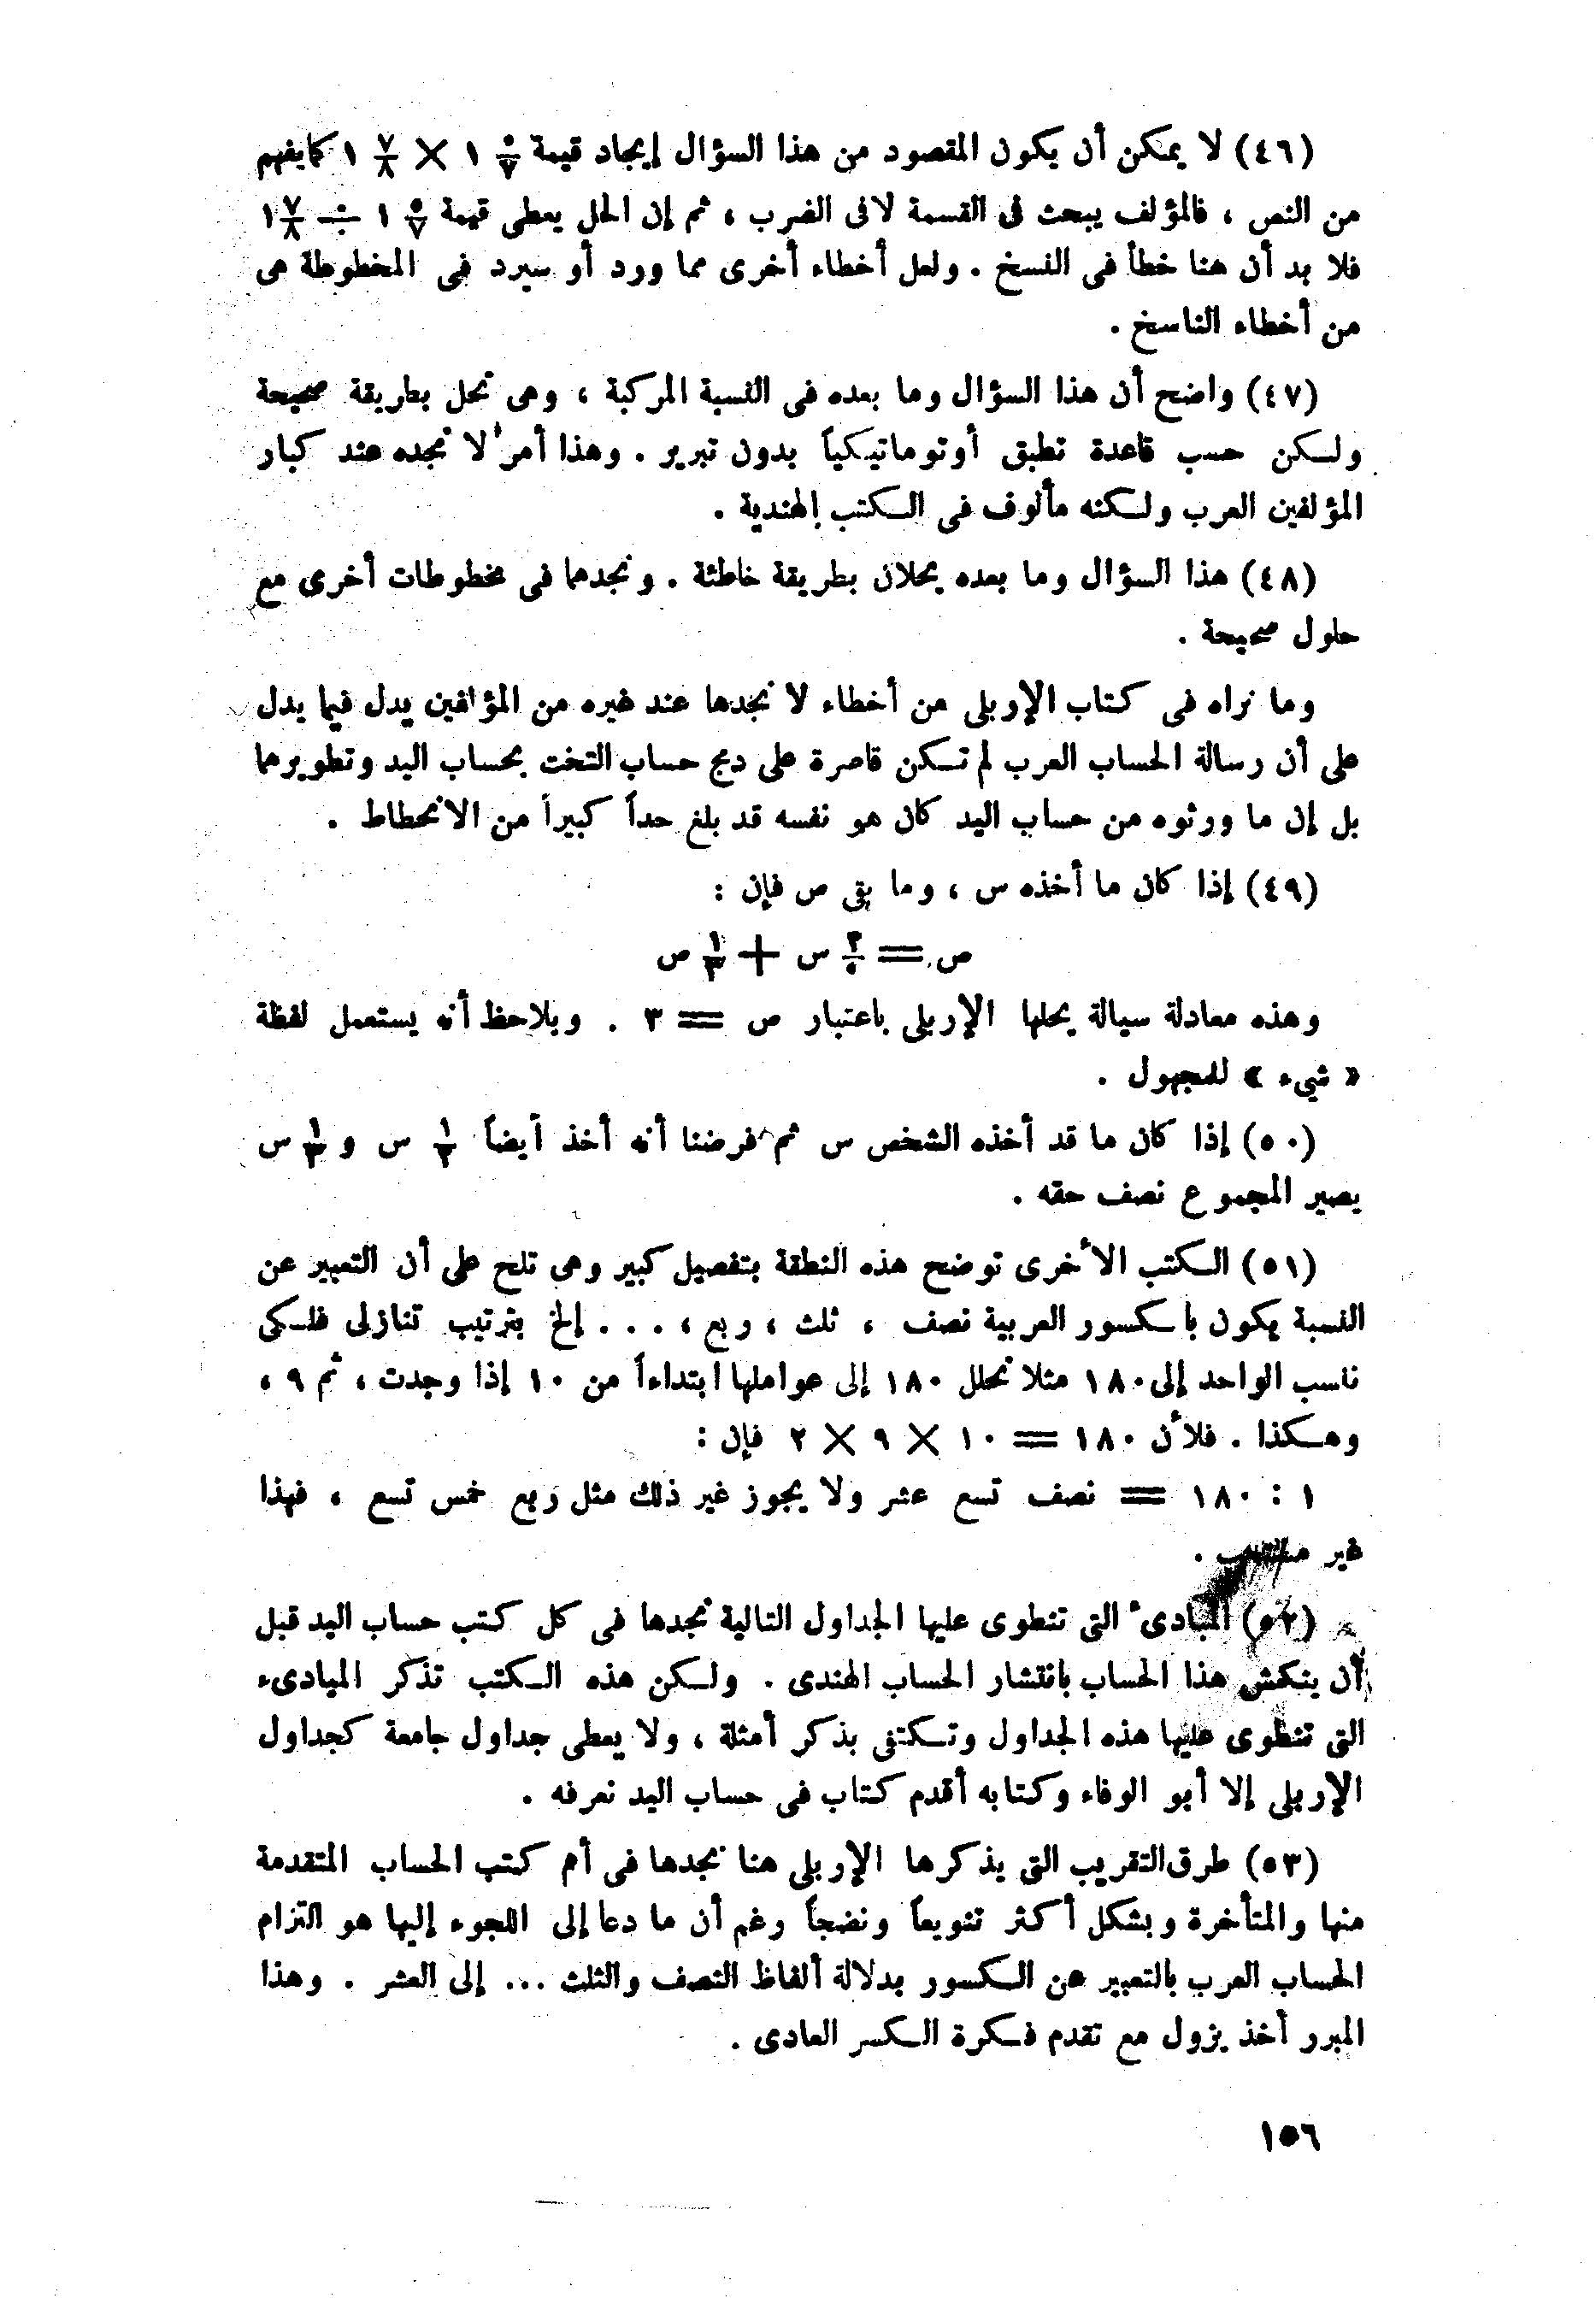 (٤٦) لا يمكن أن يكون المقصود من هذا السؤال إيجاد قيمة ٥/٧ ١ × ٧/٨ ١ كما يفهم
من النص ، فالمؤلف يبحث فى القسمة لا فى الضرب ، ثم إن الحل يعطى قيمة ٥/٧ ١ ÷ ٧/٨ ١
فلا بد أن هنا خطأ فى النسخ . ولعل أخطاء أخرى مما ورد أو سيرد فى المخطوطة هى
من أخطاء الناسخ .
(٤٧) واضح أن هذا السؤال وما بعده فى النسبة المركبة ، وهى تحل بطريقة صحيحة
ولكن حسب قاعدة تطبق أوتوماتيكياً بدون تبرير . وهذا أمر لا نجده عند كبار
المؤلفين العرب ولكنه مألوف فى الكتب الهندية .
(٤٨) هذا السؤال وما بعده يحلان بطريقة خاطئة . ونجدهما فى مخطوطات أخرى مع
حلول صحيحة .
وما نراه فى كتاب الإربلى من أخطاء لا نجدها عند غيره من المؤلفين يدل فيما يدل
على أن رسالة الحساب العرب لم تكن قاصرة على دمج حساب التخت بحساب اليد وتطويرهما
بل إن ما ورثوه من حساب اليد كان هو نفسه قد بلغ حداً كبيراً من الانحطاط .
(٤٩) إذا كان ما أخذه س ، وما بقى ص فإن :
ص = ٢/٥ س + ١/٣ ص
وهذه معادلة سيالة يحلها الإربلى باعتبار ص = ٣ . ويلاحظ أنه يستعمل لفظة
« شيء » للمجهول .
(٥٠) إذا كان ما قد أخذه الشخص س ثم فرضنا أنه أخذ أيضاً ١/٢ س و ١/٣ س
يصير المجموع نصف حقه .
(٥١) الكتب الأخرى توضح هذه النطقة بتفصيل كبير وهى تلح على أن التعبير عن
النسبة يكون بالكسور العربية نصف ، ثلث ، ربع ، . . . إلخ بترتيب تنازلى فلكى
ناسب الواحد إلى ١٨٠ مثلا نحلل ١٨٠ إلى عواملها ابتداءاً من ١٠ إذا وجدت ، ثم ٩ ،
وهكذا . فلأن ١٨٠ = ١٠ × ٩ × ٢ فإن :
١ : ١٨٠ = نصف تسع عشر ولا يجوز غير ذلك مثل ربع خمس تسع ، فهذا
غير .
(٥٢) المبادىء التى تنطوى عليها الجداول التالية نجدها فى كل كتب حساب اليد قبل
أن ينكمش هذا الحساب بانتشار الحساب الهندى . ولكن هذه الكتب تذكر المبادىء
التى تنطوى عليها هذه الجداول وتكتفى بذكر أمثلة ، ولا يعطى جداول جامعة كجداول
الإربلى إلا أبو الوفاء وكتابه أقدم كتاب فى حساب اليد نعرفه .
(٥٣) طرق التقريب التى يذكرها الإربلى هنا نجدها فى أم كتب الحساب المتقدمة
منها والمتأخرة وبشكل أكثر تنويعاً ونضجاً رغم أن ما دعا إلى اللجوء إليها هو التزام
الحساب العرب بالتعبير عن الكسور بدلالة ألفاظ النصف والثلث ... إلى العشر . وهذا
المبرر أخذ يزول مع تقدم فكرة الكسر العادى .
١٥٦